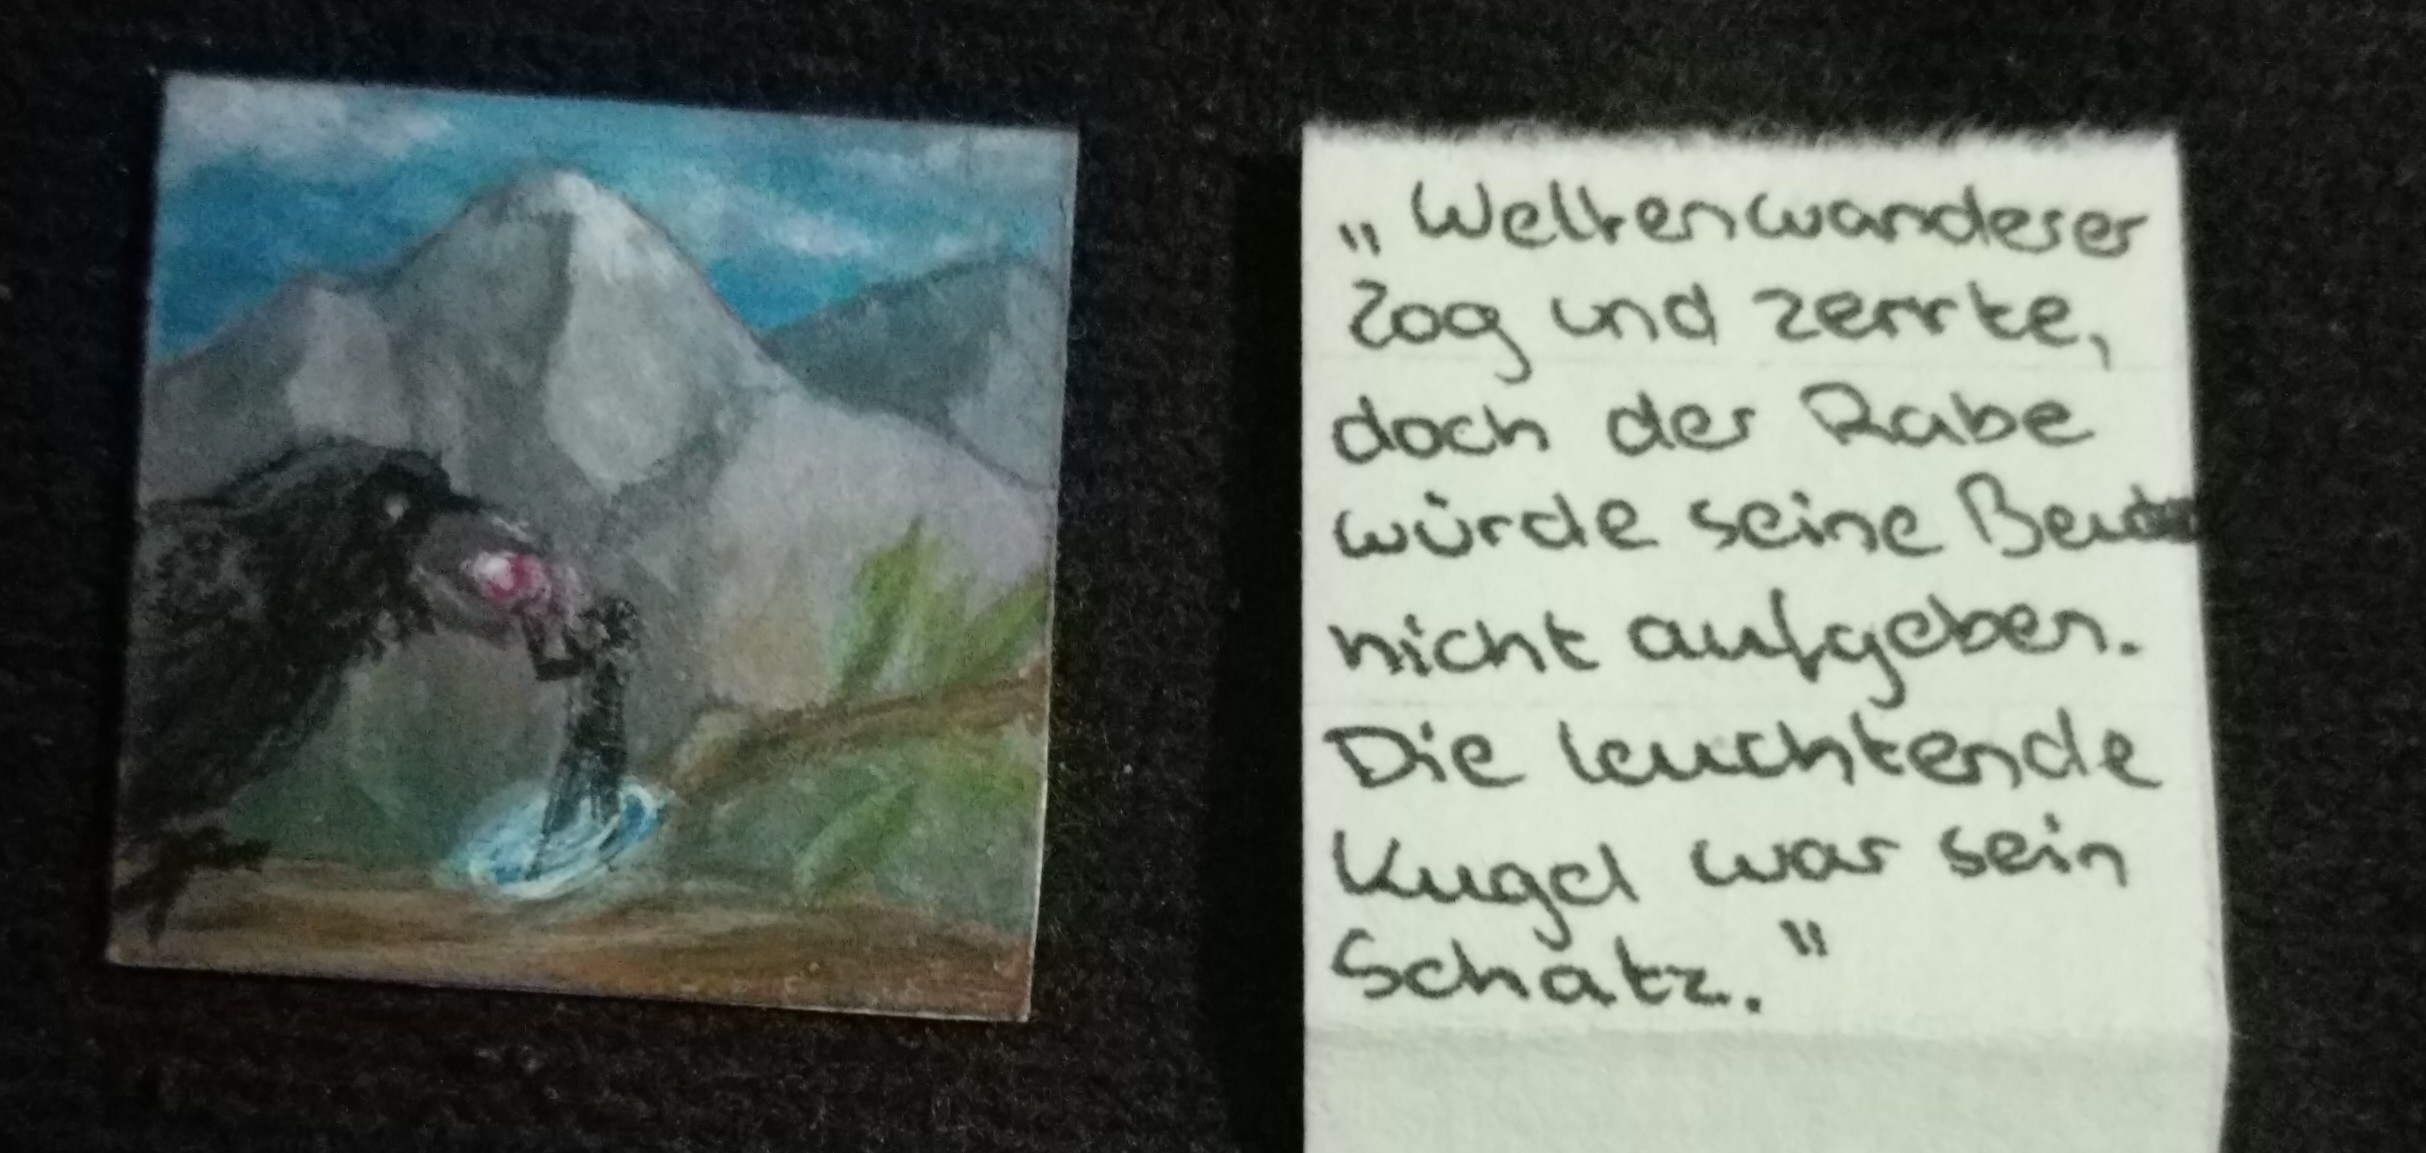 „Weltenwanderer
zog und zerrte,
doch der Rabe
würde seine Beute
nicht aufgeben.
Die leuchtende
Kugel war sein
Schatz."